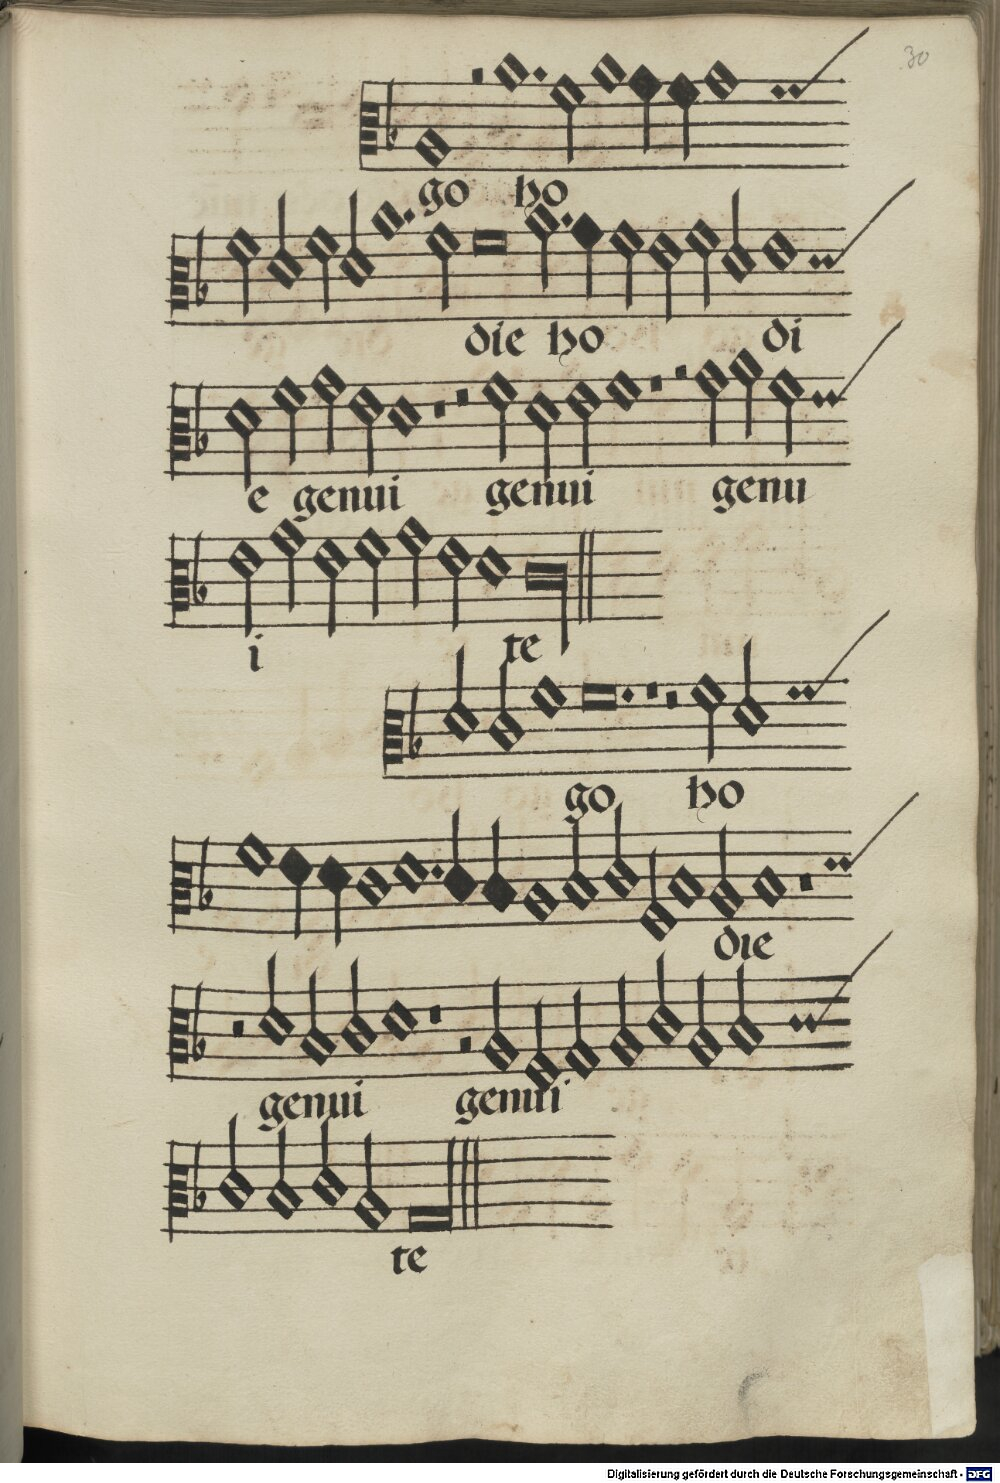 30
go ho
die ho di
e genui genui genu
i te
go ho
die
genui genui
te
Digitalisierung gefördert durch die Deutsche Forschungsgemeinschaft - DFG